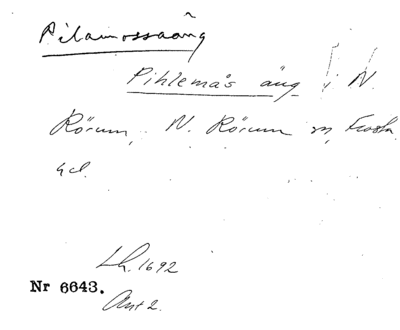 Pilamossaäng
Pihlemås äng i N.
Rörum, N. Rörum sn, Frosta
hd.
Lh. 1692
Nr 6643.
Ant 2.